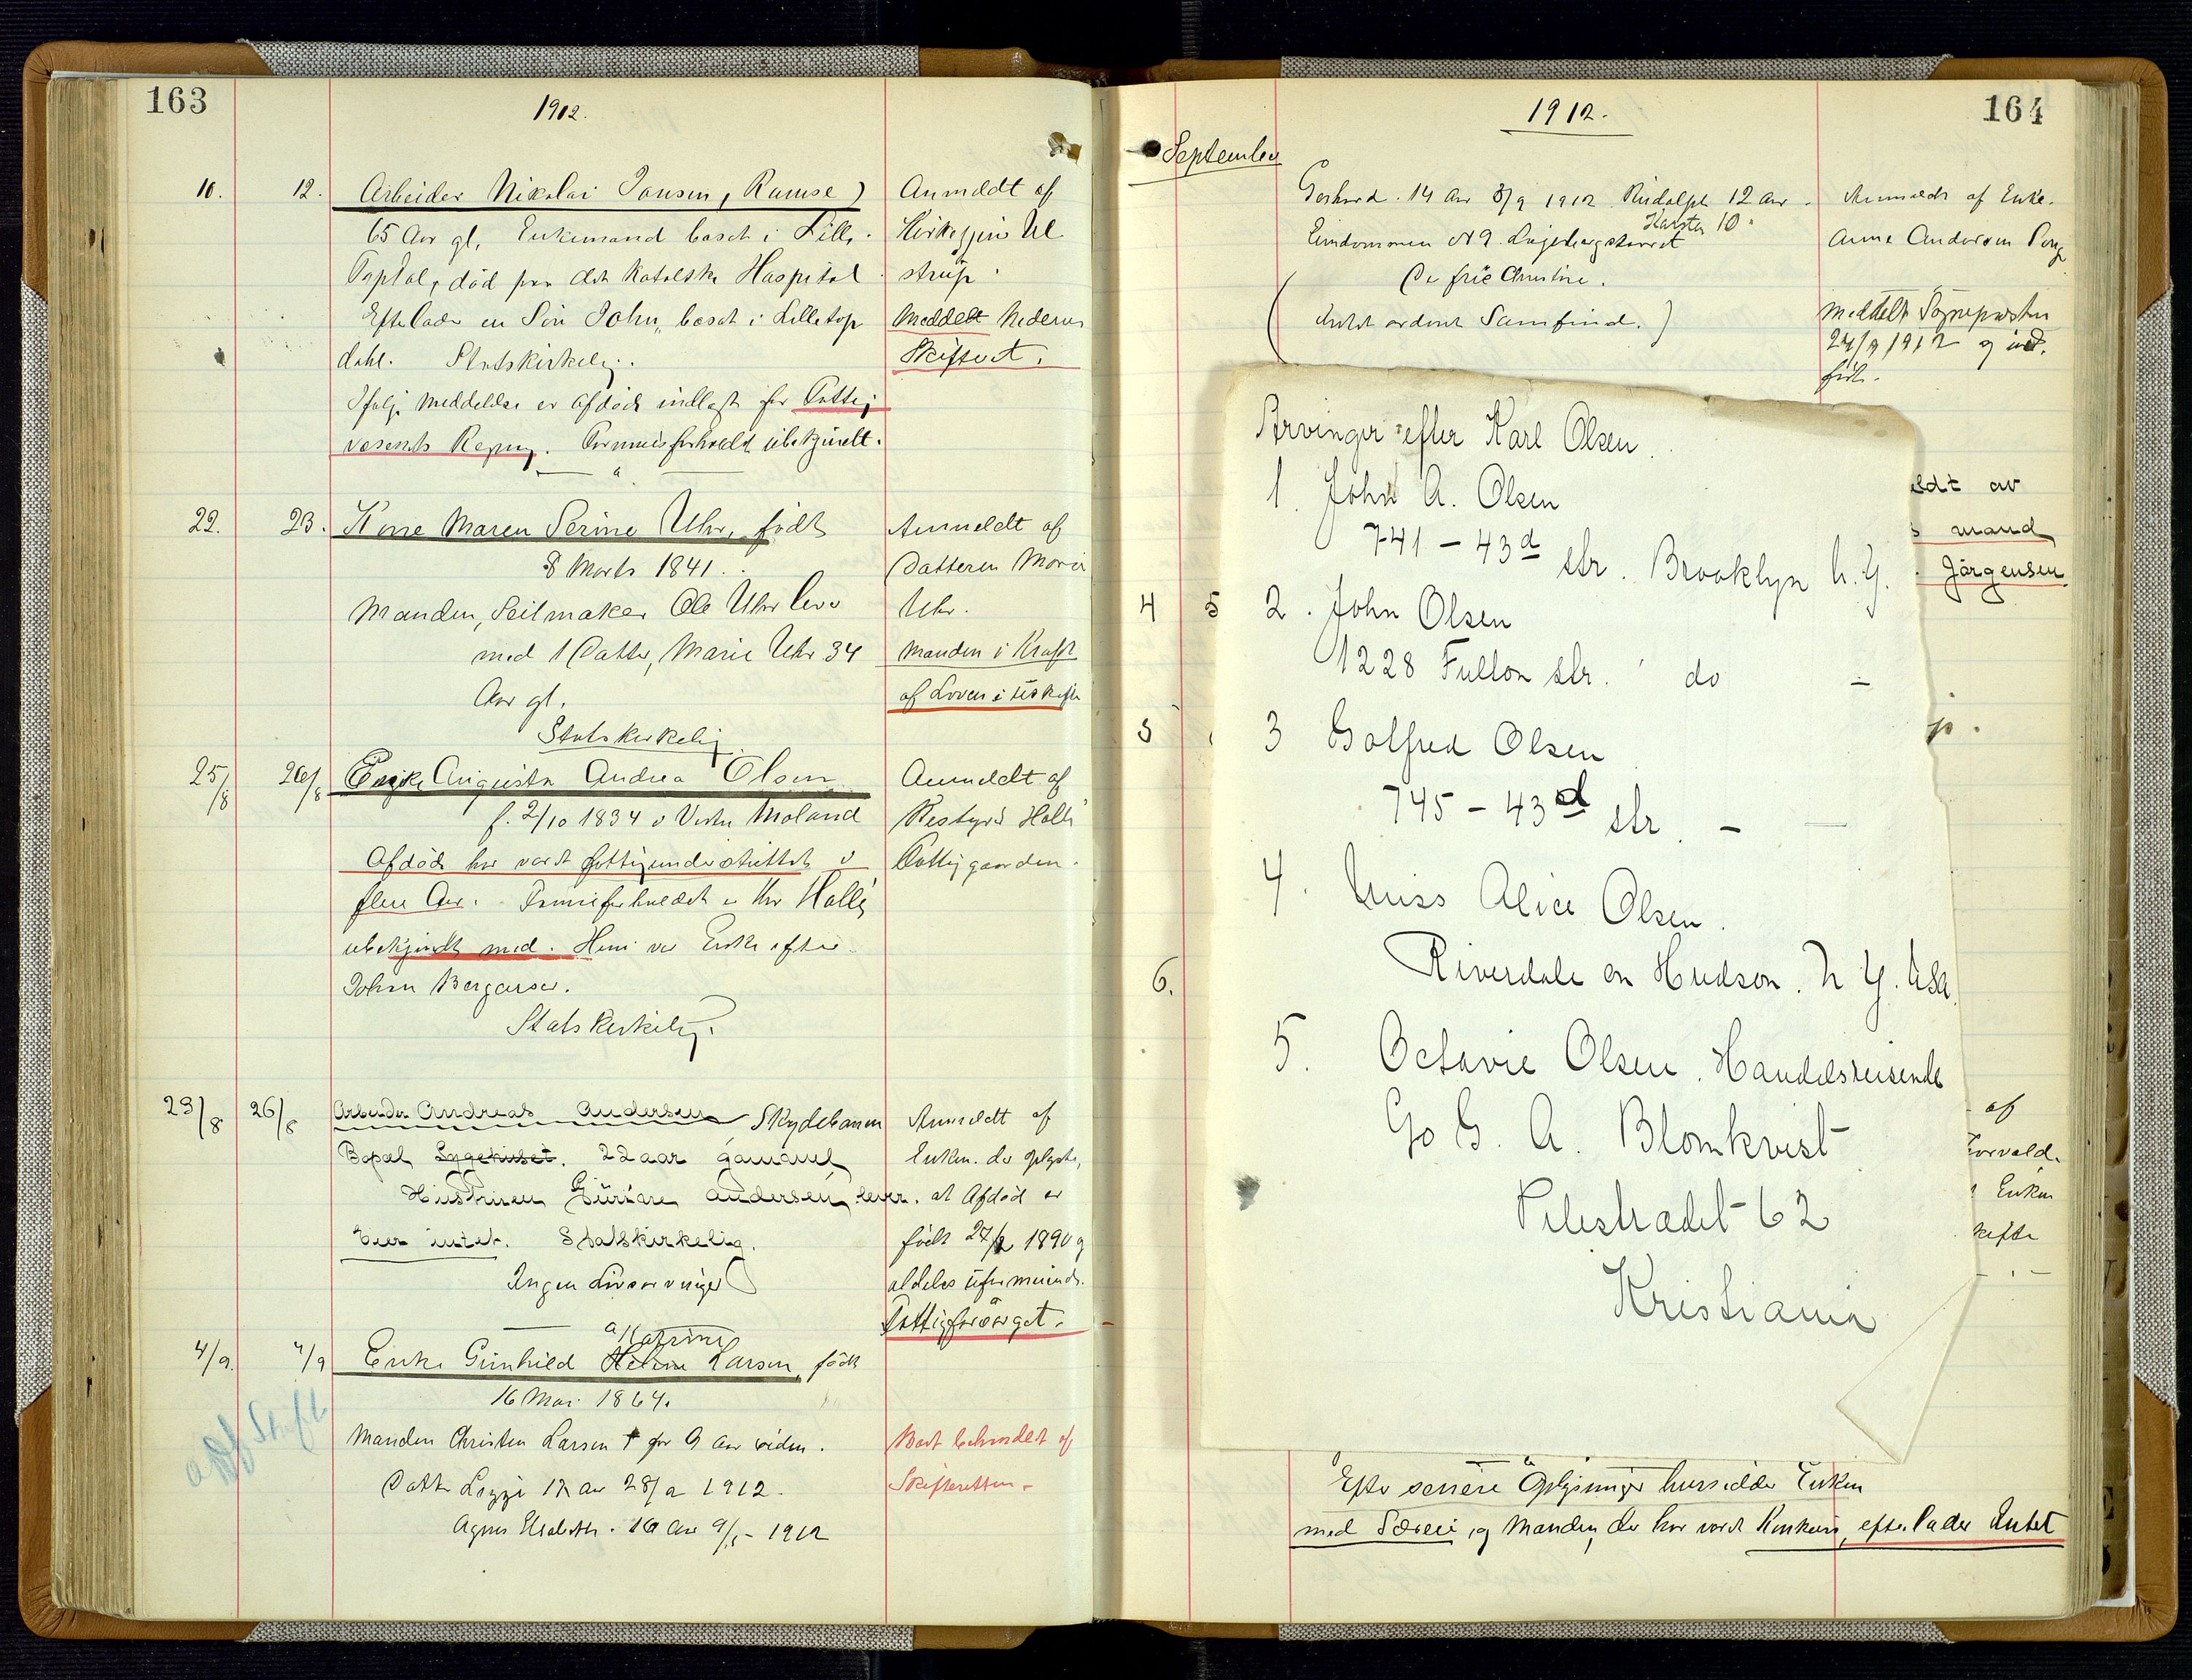 163
1912.
10. 12. Arbeider Nikolai Jansen, Ramse)
65 Aar gl, Enkemand bosat i Lille
Topdal, død paa det Katolske Hospital
Efterlader en Søn John, bosat i Lilletop
dahl. Statskirkelig.
Ifølge Meddelelse er Afdøde indlagt for Fattig
væsenets Regning. Formuesforholdet ubekjendt.
Anmeldt af
Meddelt Nedenes
Skifteret.
22. 23. Kone Maren Serine Uhr, født
8 Marts 1841.
Manden, Seilmaker Ole Uhr lever
med 1 Datter, Marie Uhr 34
Aar gl.
Statskirkelig
Anmeldt af
Datteren Marie
Uhr.
Manden i Kraft
af Loven i uskifte
25/8 26/8 Enke Augusta Andrea Olsen
f. 2/10 1834 i Vestre Moland
Afdøde har været fattigunderstøttet i
flere Aar. Formueforholdet er Hr Holli
ubekjendt med. Hun var Enke efter
Johan Bergersen.
Statskirkelig.
Anmeldt af
Bestyrer Holli
Fattiggaarden.
23/8 26/8 Arbeider Andreas Andersen Skydebanen
Bopæl Sygehuset. 22 aar gammel
Hustruen Gurine Andersen lever.
Eier intet. Statskirkelig.
Ingen Livsarvinger
Anmeldt af
Enken. der oplyste,
at Afdøde er
født 27/2 1890 og
aldeles uformuende.
Fattigforsørget.
Katrine
4/9. 4/9 Enke Gunhild Heline Larsen, født
16 Mai 1864.
Manden Christen Larsen † for 9 Aar siden.
Datter Lizzi 17 aar 28/2 1912.
Agnes Elisabeth. 16 Aar 9/5 - 1912
Bort behandlet af
Skifteretten.
164
1912.
September
Gerhard. 14 Aar 8/9 1912 Rudolph 12 Aar.
Karsten 10.
Eiendommen No 9.
De frie Christne.
(Intet ordent Samfund.)
Anmeldt af Enke.
Anna Andersen
Meddelt Sognepresten
24/9 1912 og ind.
ført.
Arvinger efter Karl Olsen.
1. John A. Olsen
741 - 43d str. Brooklyn N.Y.
2. John Olsen
1228 Fulton str. do -
3 Golfred Olsen
745 - 43d str. -
4. Miss Alice Olsen.
Riverdale on Hudson. N Y. USA.
5. Octavie Olsen. Handelsreisende
c/o G. A. Blomkvist
Pilestrædet 62
Kristiania
eldt av
s mand
Jørgensen
4 5
5
6.
af
Enken
kifte
Efter senere Oplysninger hensidder Enken
med Særeie, og Manden, der har været Konkurs, efterlader Intet